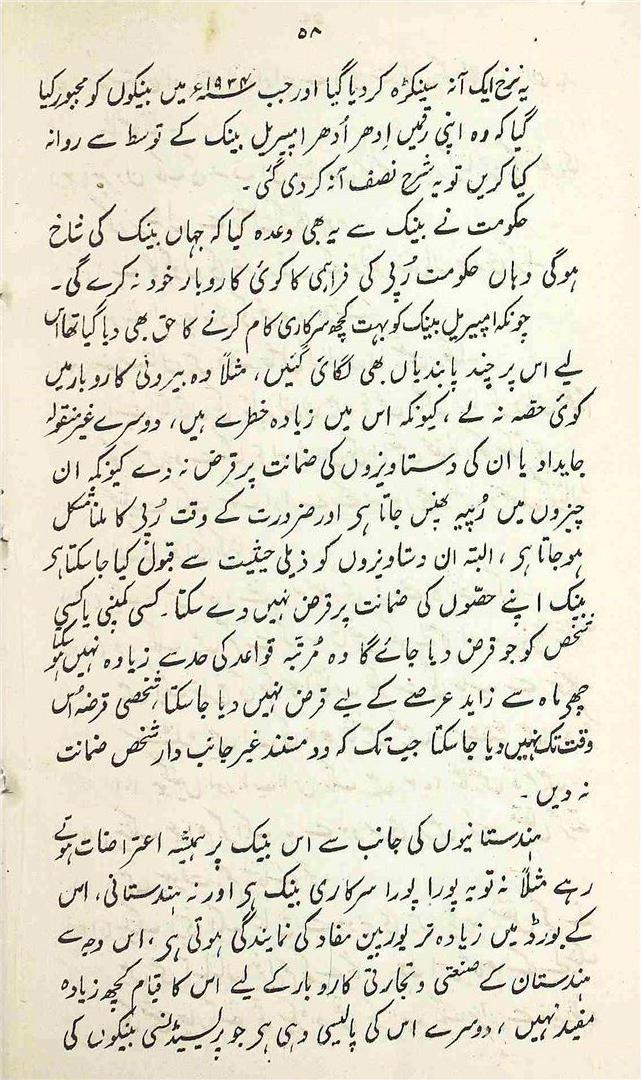 ۵۸
یہ نرخ ایک آنہ سینکڑہ کر دیا گیا اور جب ۱۹۳۴ء میں بینکوں کو مجبور کیا
گیا کہ وہ اپنی رقمیں اِدھر اُدھر امپیریل بینک کے توسط سے روانہ
کیا کریں تو یہ شرح نصف آنہ کر دی گئی۔
حکومت نے بینک سے یہ بھی وعدہ کیا کہ جہاں بینک کی شاخ
ہوگی وہاں حکومت رُپی کی فراہمی کا کوئی کاروبار خود نہ کرے گی۔
چونکہ امپیریل بینک کو بہت کچھ سرکاری کام کرنے کا حق بھی دیا گیا تھا اس
لیے اس پر چند پابندیاں بھی لگائی گئیں، مثلاً وہ بیرونی کاروبار میں
کوئی حصّہ نہ لے، کیونکہ اس میں زیادہ خطرے ہیں، دوسرے غیر منقولہ
جایداد یا ان کی دستاویزوں کی ضمانت پر قرض نہ دے کیونکہ ان
چیزوں میں رُپیہ پھنس جاتا ہر اور ضرورت کے وقت رُپی کا ملنا مشکل
ہو جاتا ہر، البتہ ان دستاویزوں کو ذیلی حیثیت سے قبول کیا جا سکتا ہر
بینک اپنے حصّوں کی ضمانت پر قرض نہیں دے سکتا۔ کسی کمپنی یا کسی
شخص کو جو قرض دیا جائے گا وہ مُرتّبہ قواعد کی حد سے زیادہ نہیں ہو سکتا
چھ ماہ سے زاید عرصے کے لیے قرض نہیں دیا جا سکتا، شخصی قرضہ اُس
وقت تک نہیں دیا جا سکتا جب تک کہ دو مستند غیر جانب دار شخص ضمانت
نہ دیں۔
ہندستانیوں کی جانب سے اس بینک پر ہمیشہ اعتراضات ہوتے
رہے مثلاً نہ تو یہ پورا پورا سرکاری بینک ہر اور نہ ہندستانی، اس
کے بورڈ میں زیادہ تر یورپین مفاد کی نمایندگی ہوتی ہر، اس وجہ سے
ہندستان کے صنعتی و تجارتی کاروبار کے لیے اس کا قیام کچھ زیادہ
مفید نہیں، دوسرے اس کی پالیسی وہی ہر جو پریسیڈنسی بینکوں کی